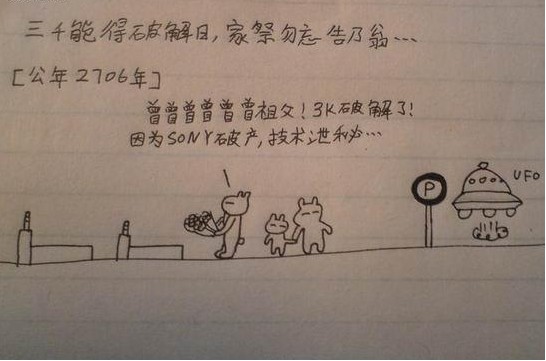 三千能得破解日,家祭勿忘告乃翁...
[公年2706年]
曾曾曾曾曾曾祖父!3K破解了!
因为SONY破产,技术泄秘...
P
UFO